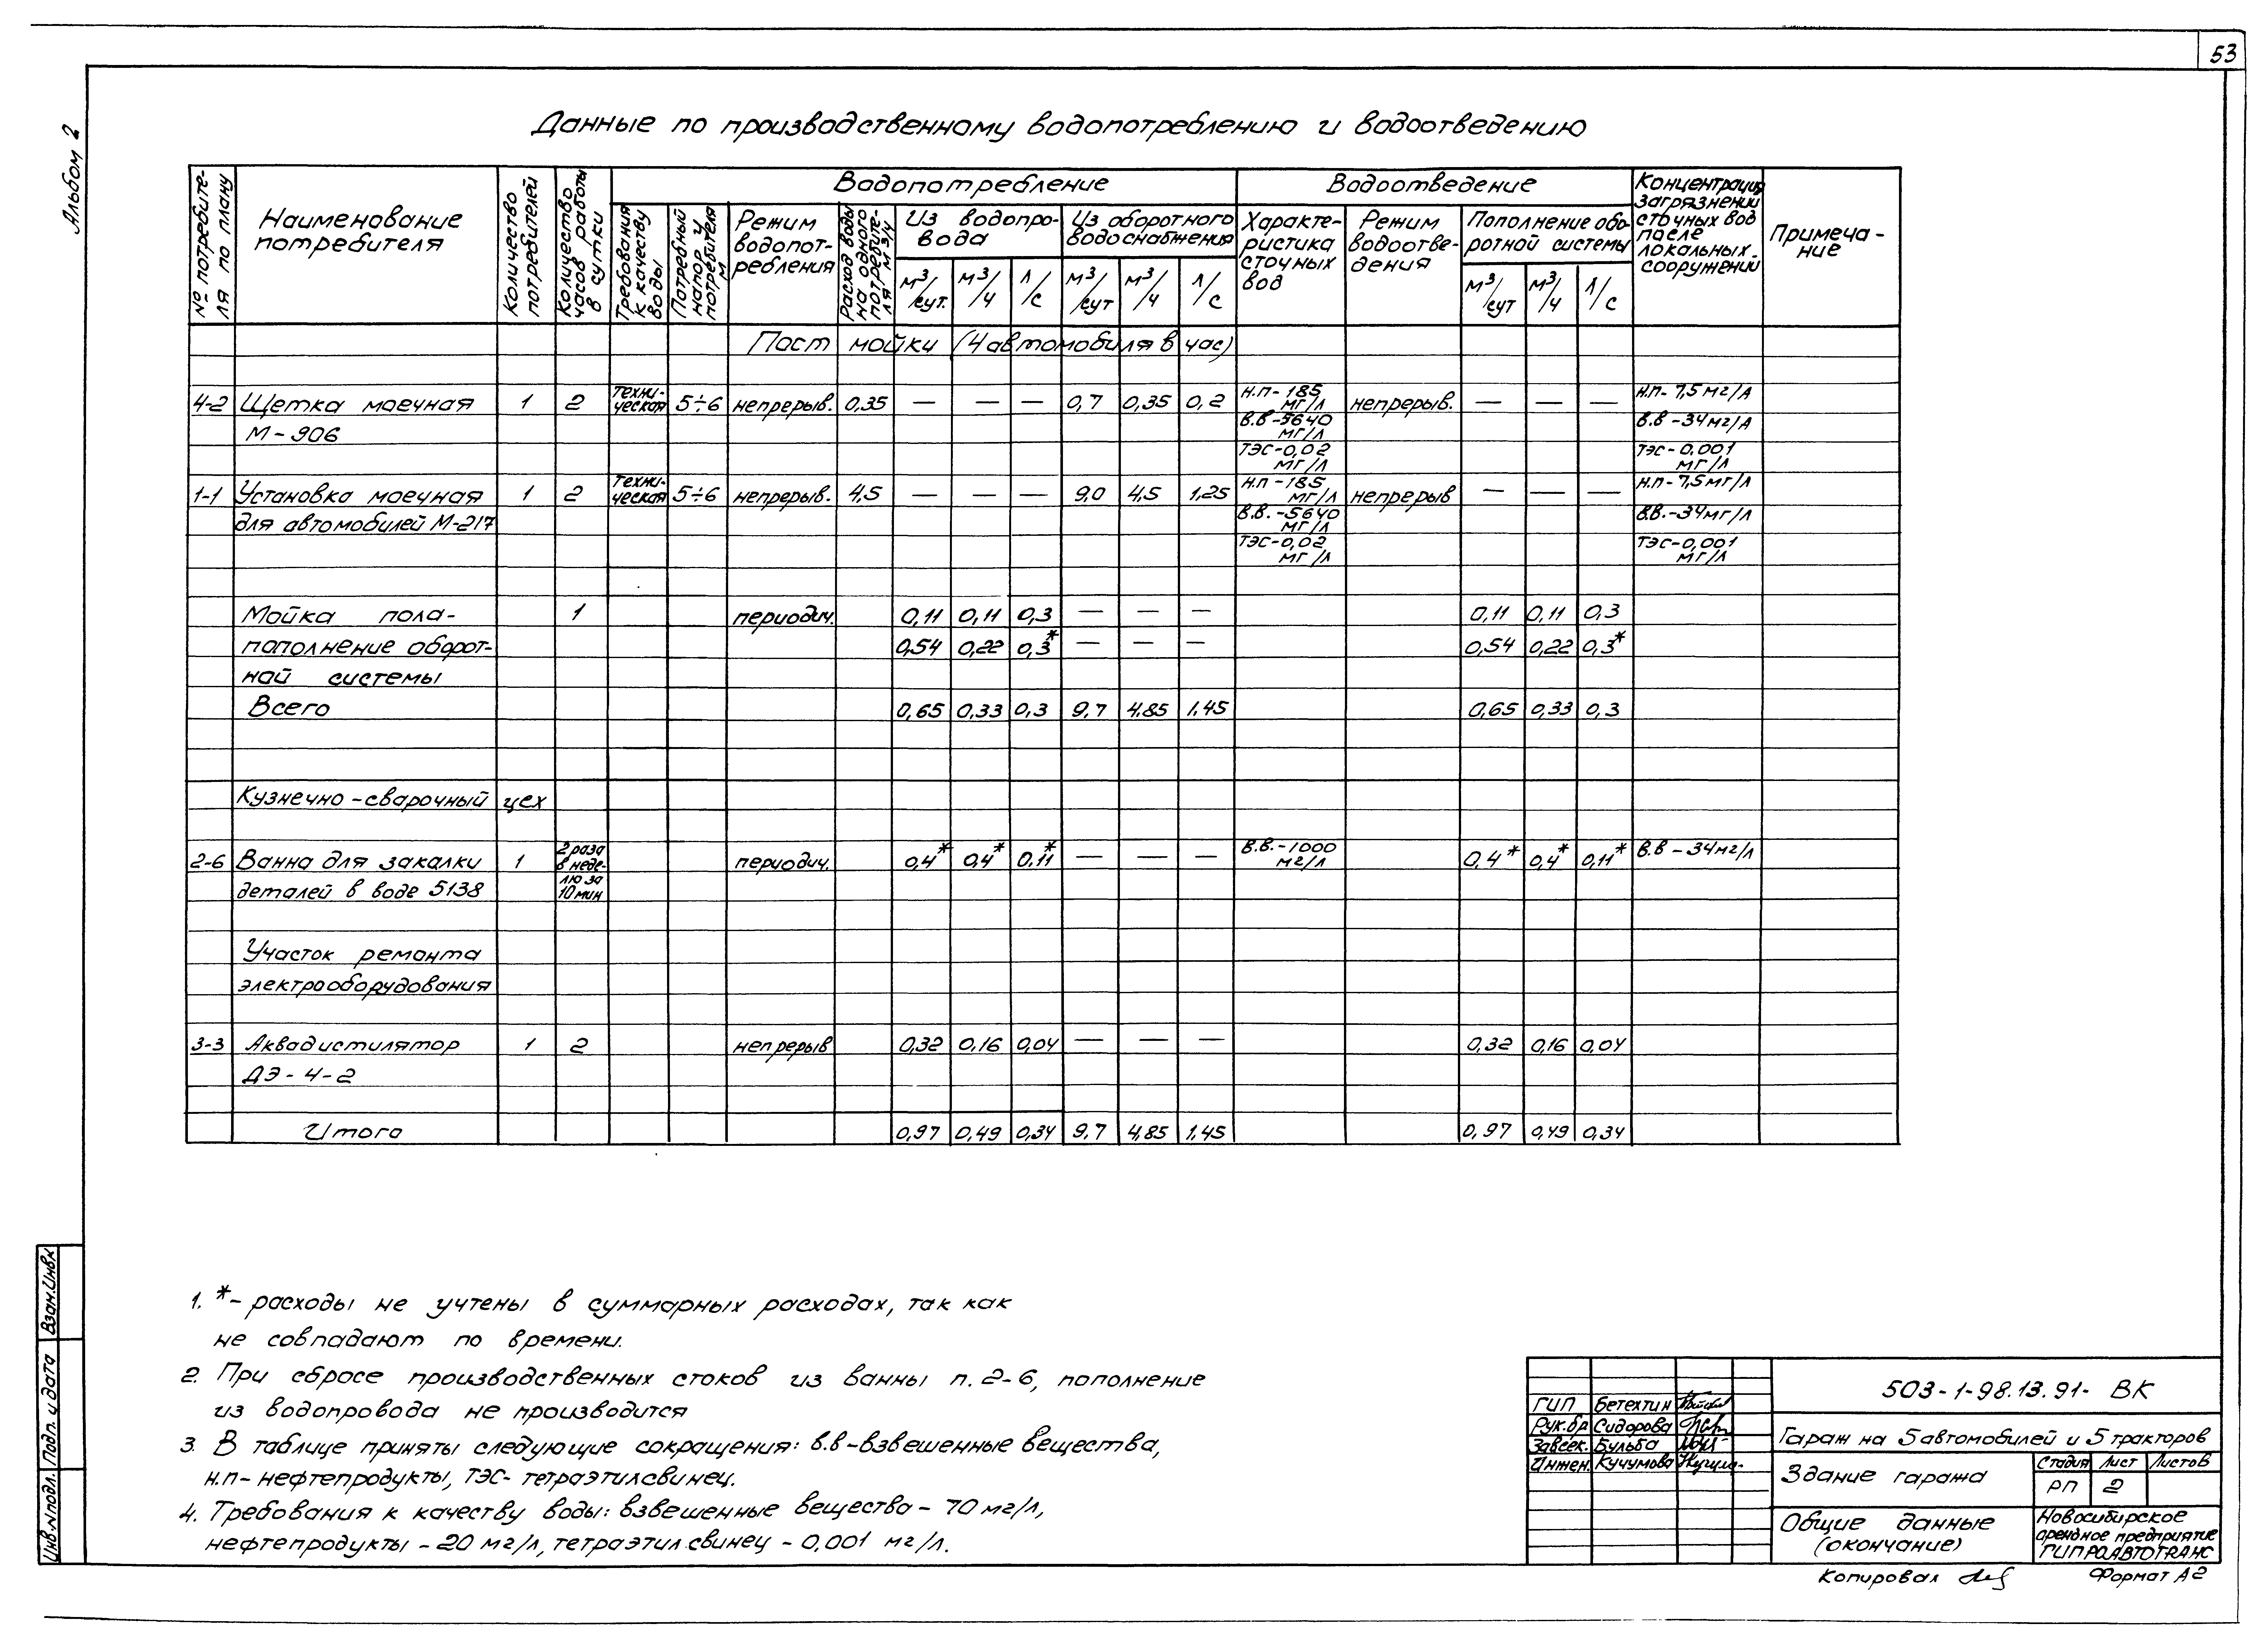 53
Альбом 2
Данные по производственному водопотреблению и водоотведению
№ потребите-
ля по плану
Наименование
потребителя
Количество
потребителей
Количество
часов работы
в сутки
Водопотребление
Требования
к качеству
воды
Потребный
напор у
потребителя
м
Режим
водопот-
ребления
Расход воды
на одного
потребите-
ля м3/ч
Из водопро-
вода
Из оборотного
водоснабжения
м³/сут. м³/ч л/с м³/сут м³/ч л/с
Водоотведение
Характе-
ристика
сточных
вод
Режим
водоотве-
дения
Пополнение обо-
ротной системы
м³/сут м³/ч л/с
Концентрация
загрязнений
сточных вод
после
локальных
сооружений
Примеча-
ние
Пост мойки (4 автомобиля в час)
4-2 Щетка моечная 1 2 техни-ческая 5÷6 непрерыв. 0,35 — — — 0,7 0,35 0,2 н.п-185 мг/л непрерыв. — — — н.п-7,5мг/л
М-906 в.в-5640 мг/л в.в-34мг/л
ТЭС-0,02 мг/л ТЭС-0,001 мг/л
1-1 Установка моечная 1 2 техни-ческая 5÷6 непрерыв. 4,5 — — — 9,0 4,5 1,25 н.п-185 мг/л непрерыв — — — н.п-7,5мг/л
для автомобилей М-217 в.в.-5640 мг/л в.в.-34мг/л
ТЭС-0,02 мг/л ТЭС-0,001 мг/л
Мойка пола- 1 периодич. 0,11 0,11 0,3 — — — 0,11 0,11 0,3
пополнение оборот- 0,54 0,22 0,3* — — — 0,54 0,22 0,3*
ной системы
Всего 0,65 0,33 0,3 9,7 4,85 1,45 0,65 0,33 0,3
Кузнечно-сварочный цех
2-6 Ванна для закалки 1 2 раза в неде- периодич. 0,4* 0,4* 0,11* — — — в.в.-1000 мг/л 0,4* 0,4* 0,11* в.в-34мг/л
деталей в воде 5138 лю за 10 мин
Участок ремонта
электрооборудования
3-3 Аквадистилятор 1 2 непрерыв 0,32 0,16 0,04 — — — 0,32 0,16 0,04
ДЭ-4-2
Итого 0,97 0,49 0,34 9,7 4,85 1,45 0,97 0,49 0,34
1. *- расходы не учтены в суммарных расходах, так как
не совпадают по времени.
2. При сбросе производственных стоков из ванны п. 2-6, пополнение
из водопровода не производится
3. В таблице приняты следующие сокращения: в.в-взвешенные вещества,
н.п- нефтепродукты, ТЭС- тетраэтилсвинец.
4. Требования к качеству воды: взвешенные вещества - 70 мг/л,
нефтепродукты - 20 мг/л, тетраэтил свинец - 0,001 мг/л.
Взам.Инв.№
Подп. и дата
Инв.№подл.
ГИП Бетехтин
Рук.бр Сидорова
Завсек. Бульба
Инжен. Кучумова
503-1-98.13.91- ВК
Гараж на 5 автомобилей и 5 тракторов
Здание гаража
Стадия Лист Листов
РП 2
Общие данные
(окончание)
Новосибирское
арендное предприятие
ГИПРОАВТОТРАНС
Копировал
Формат А2